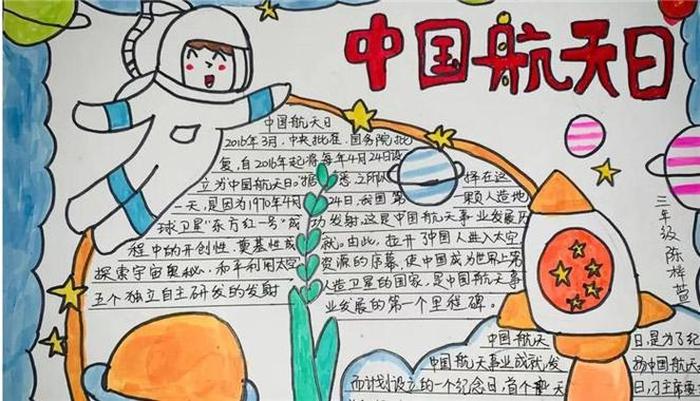 中国航天日
中国航天日
2016年3月，中央批准，国务院批
复，自2016年起将每年4月24日设
立为中国航天日。据悉，之所以 择在这
一天，是因为1970年4月 24日，我国第 颗人造地
球卫星“东方红一号”成功发射，这是中国航天事业发展历
程中的开创性、奠基性成就。由此，拉开了中国人进入太空
探索宇宙奥秘、和平利用太空资源的序幕，使中国成为世界上第
五个独立自主研发的发射人造卫星的国家，是中国航天事
业发展的第一个里程碑。
三年级 陈梓萱
中国航天 日，是为了纪
中国航天事业成就，发扬中国航天
而计划设立的一个纪念日，首个航天日，